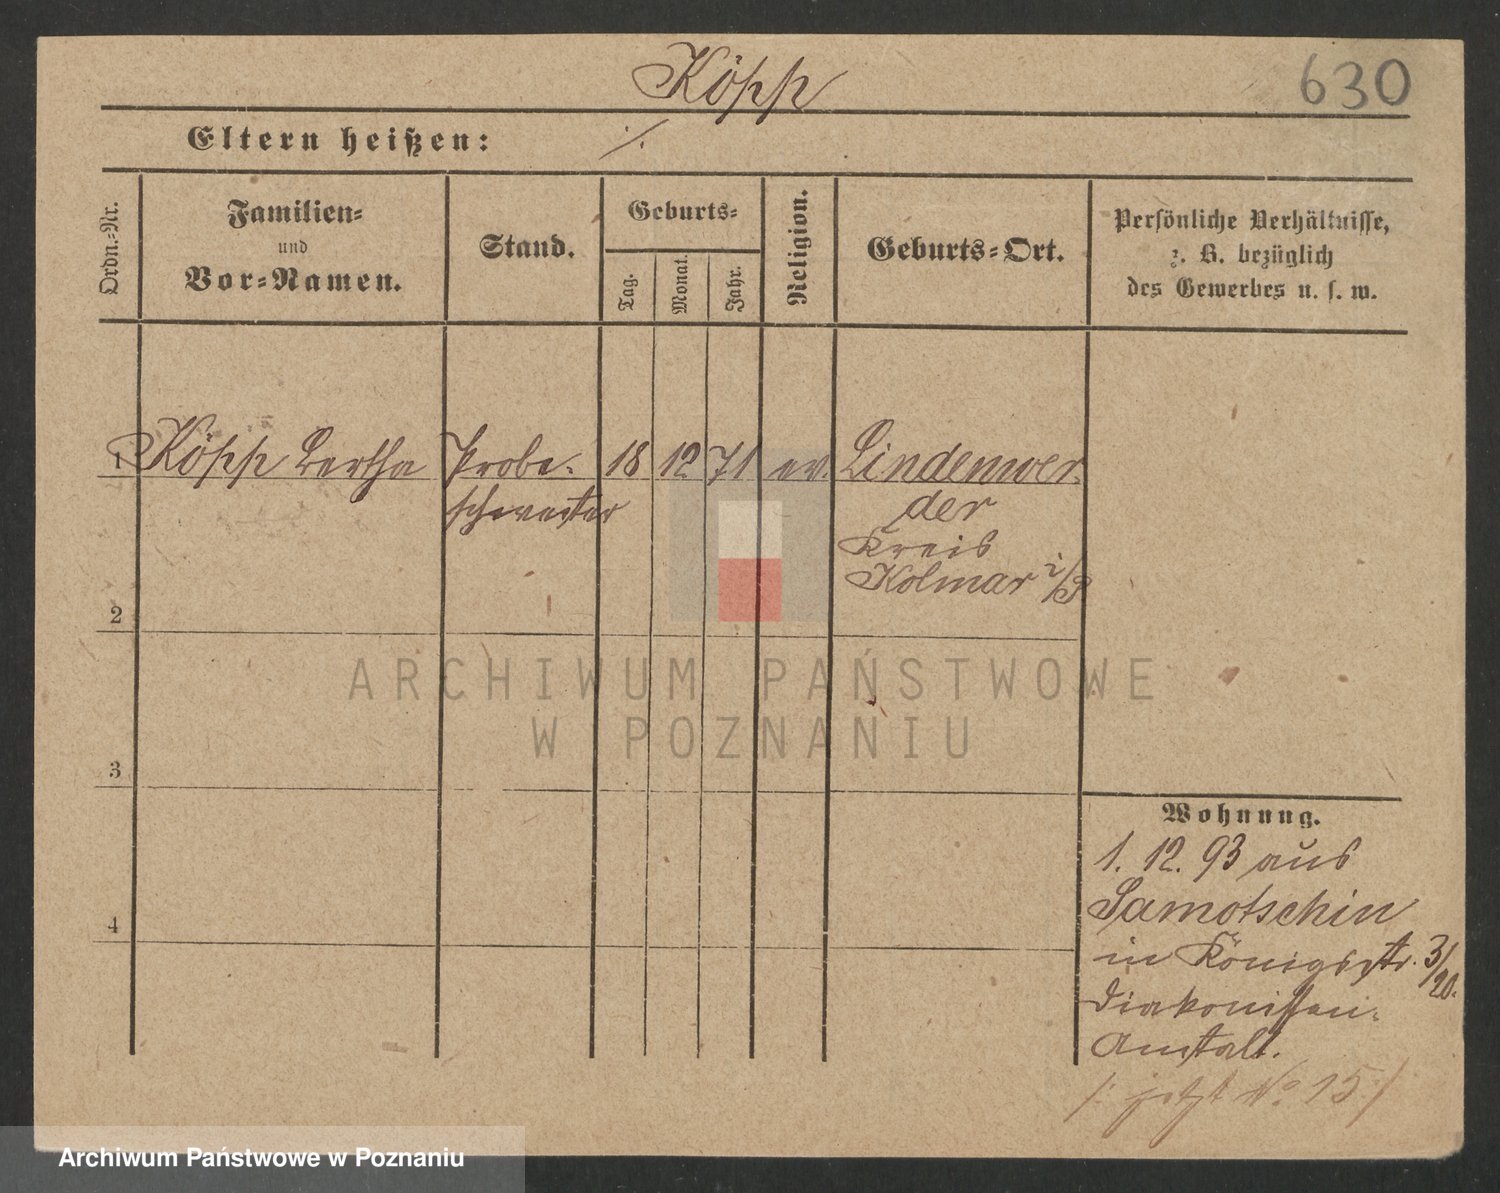 Köpp
630
Eltern heißen: ./.
Ordn.-Nr.
Familien-
und
Vor-Namen.
Stand.
Geburts-
Tag.
Monat.
Jahr.
Religion.
Geburts-Ort.
Persönliche Verhältnisse,
z. B. bezüglich
des Gewerbes u. s. w.
1 Köpp Bertha Probe- 18 12 71 ev. Lindenwer-
schwester der
Kreis
Kolmar i/P
2
3
4
Wohnung.
1. 12. 93 aus
Samotschin
in Königsstr. 3/20.
Diakonissen-
Anstalt.
/: jetzt No 15 :/
ARCHIWUM PAŃSTWOWE
W POZNANIU
Archiwum Państwowe w Poznaniu